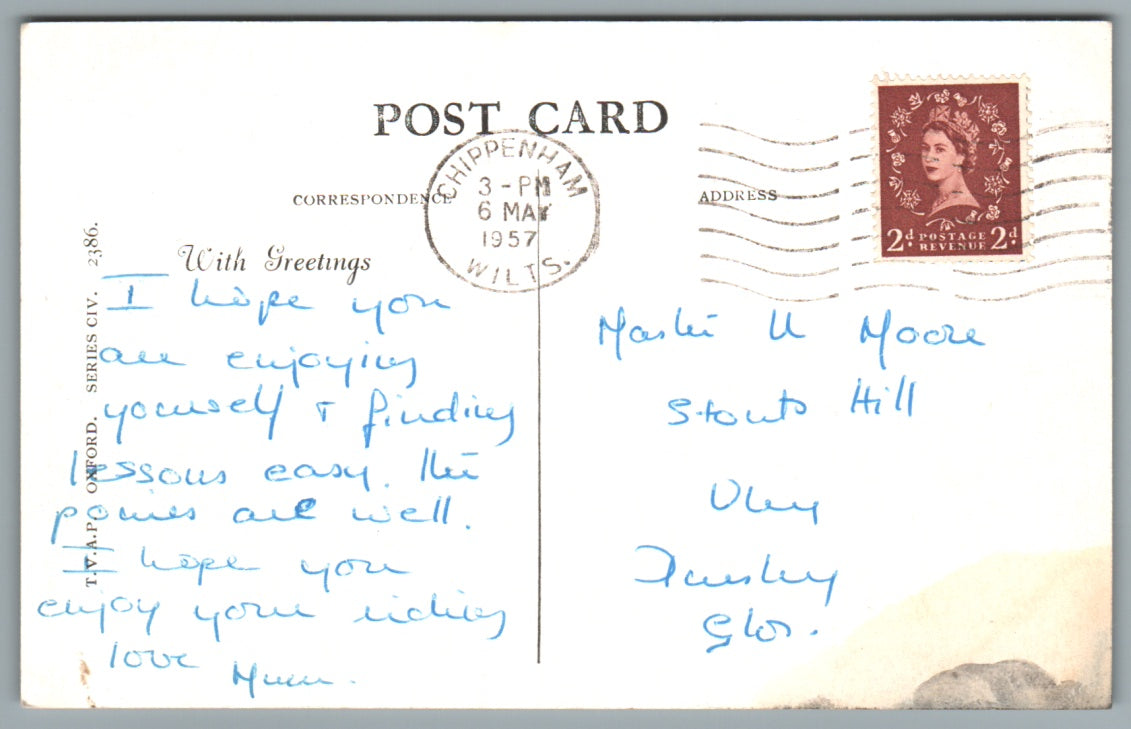 POST CARD
CORRESPONDENCE
ADDRESS
CHIPPENHAM
3 - PM
6 MAY
1957
WILTS.
2d POSTAGE 2d
REVENUE
With Greetings
I hope you
are enjoying
yourself & finding
lessons easy. The
ponies are well.
I hope you
enjoy your riding
love Mum.
Master U Moore
Stouts Hill
Uley
Dursley
Glos.
T.V.A.P. OXFORD. SERIES CIV. 2386.